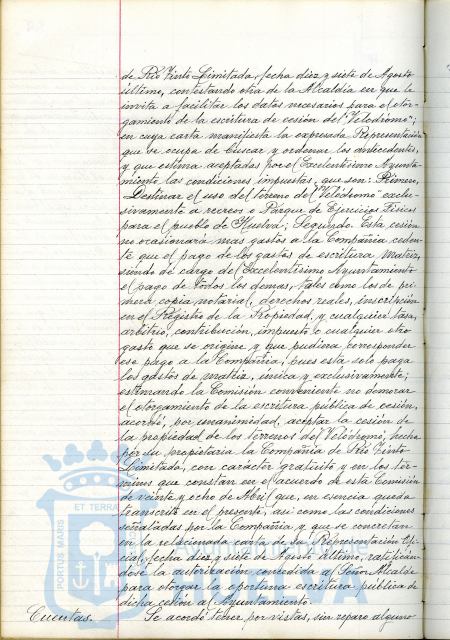 de Río Tinto Limitada, fecha diez y siete de Agosto
último, contestando otra de la Alcaldía en que le
invita a facilitar los datos necesarios para el otor-
gamiento de la escritura de cesión del "Velódromo";
en cuya carta manifiesta la expresada Representación
que se ocupa de buscar y ordenar los antecedentes,
y que estima aceptadas por el Excelentísimo Ayunta-
miento las condiciones impuestas, que son: Primero,
Destinar el uso del terreno del "Velódromo" exclu-
sivamente a recreo o Parque de Ejercicios Físicos
para el pueblo de Huelva; Segundo. Esta cesión
no ocasionará mas gastos a la Compañia ceden-
te que el pago de los gastos de escritura matriz,
siendo de cargo del Excelentísimo Ayuntamiento
el pago de todos los demas, tales como los de pri-
mera copia notarial, derechos reales, inscripción
en el Registro de la Propiedad, y cualquier tasa,
arbitrio, contribución, impuesto o cualquier otro
gasto que se origine y que pudiera corresponder
ese pago a la Compañia, pues esta solo paga
los gastos de matriz, única y exclusivamente;
estimando la Comisión conveniente no demorar
el otorgamiento de la escritura pública de cesión,
acordó, por unanimidad, aceptar la cesión de
la propiedad de los terrenos del Velódromo, hecha
por su propietaria la Compañia de Río Tinto
Limitada, con carácter gratuito y en los tér-
minos que constan en el acuerdo de esta Comisión
de veinte y ocho de Abril que, en esencia queda
transcrito en el presente, así como las condiciones
señaladas por la Compañia y que se concretan
en la relacionada carta de su Representación Ofi-
cial, fecha diez y siete de Agosto último, ratifican-
dose la autorización concedida al Señor Alcalde
para otorgar la oportuna escritura pública de
dicha cesión al Ayuntamiento.
Cuentas. Se acordó tener por vistas, sin reparo alguno
PORTUS MARIS
ET TERRA